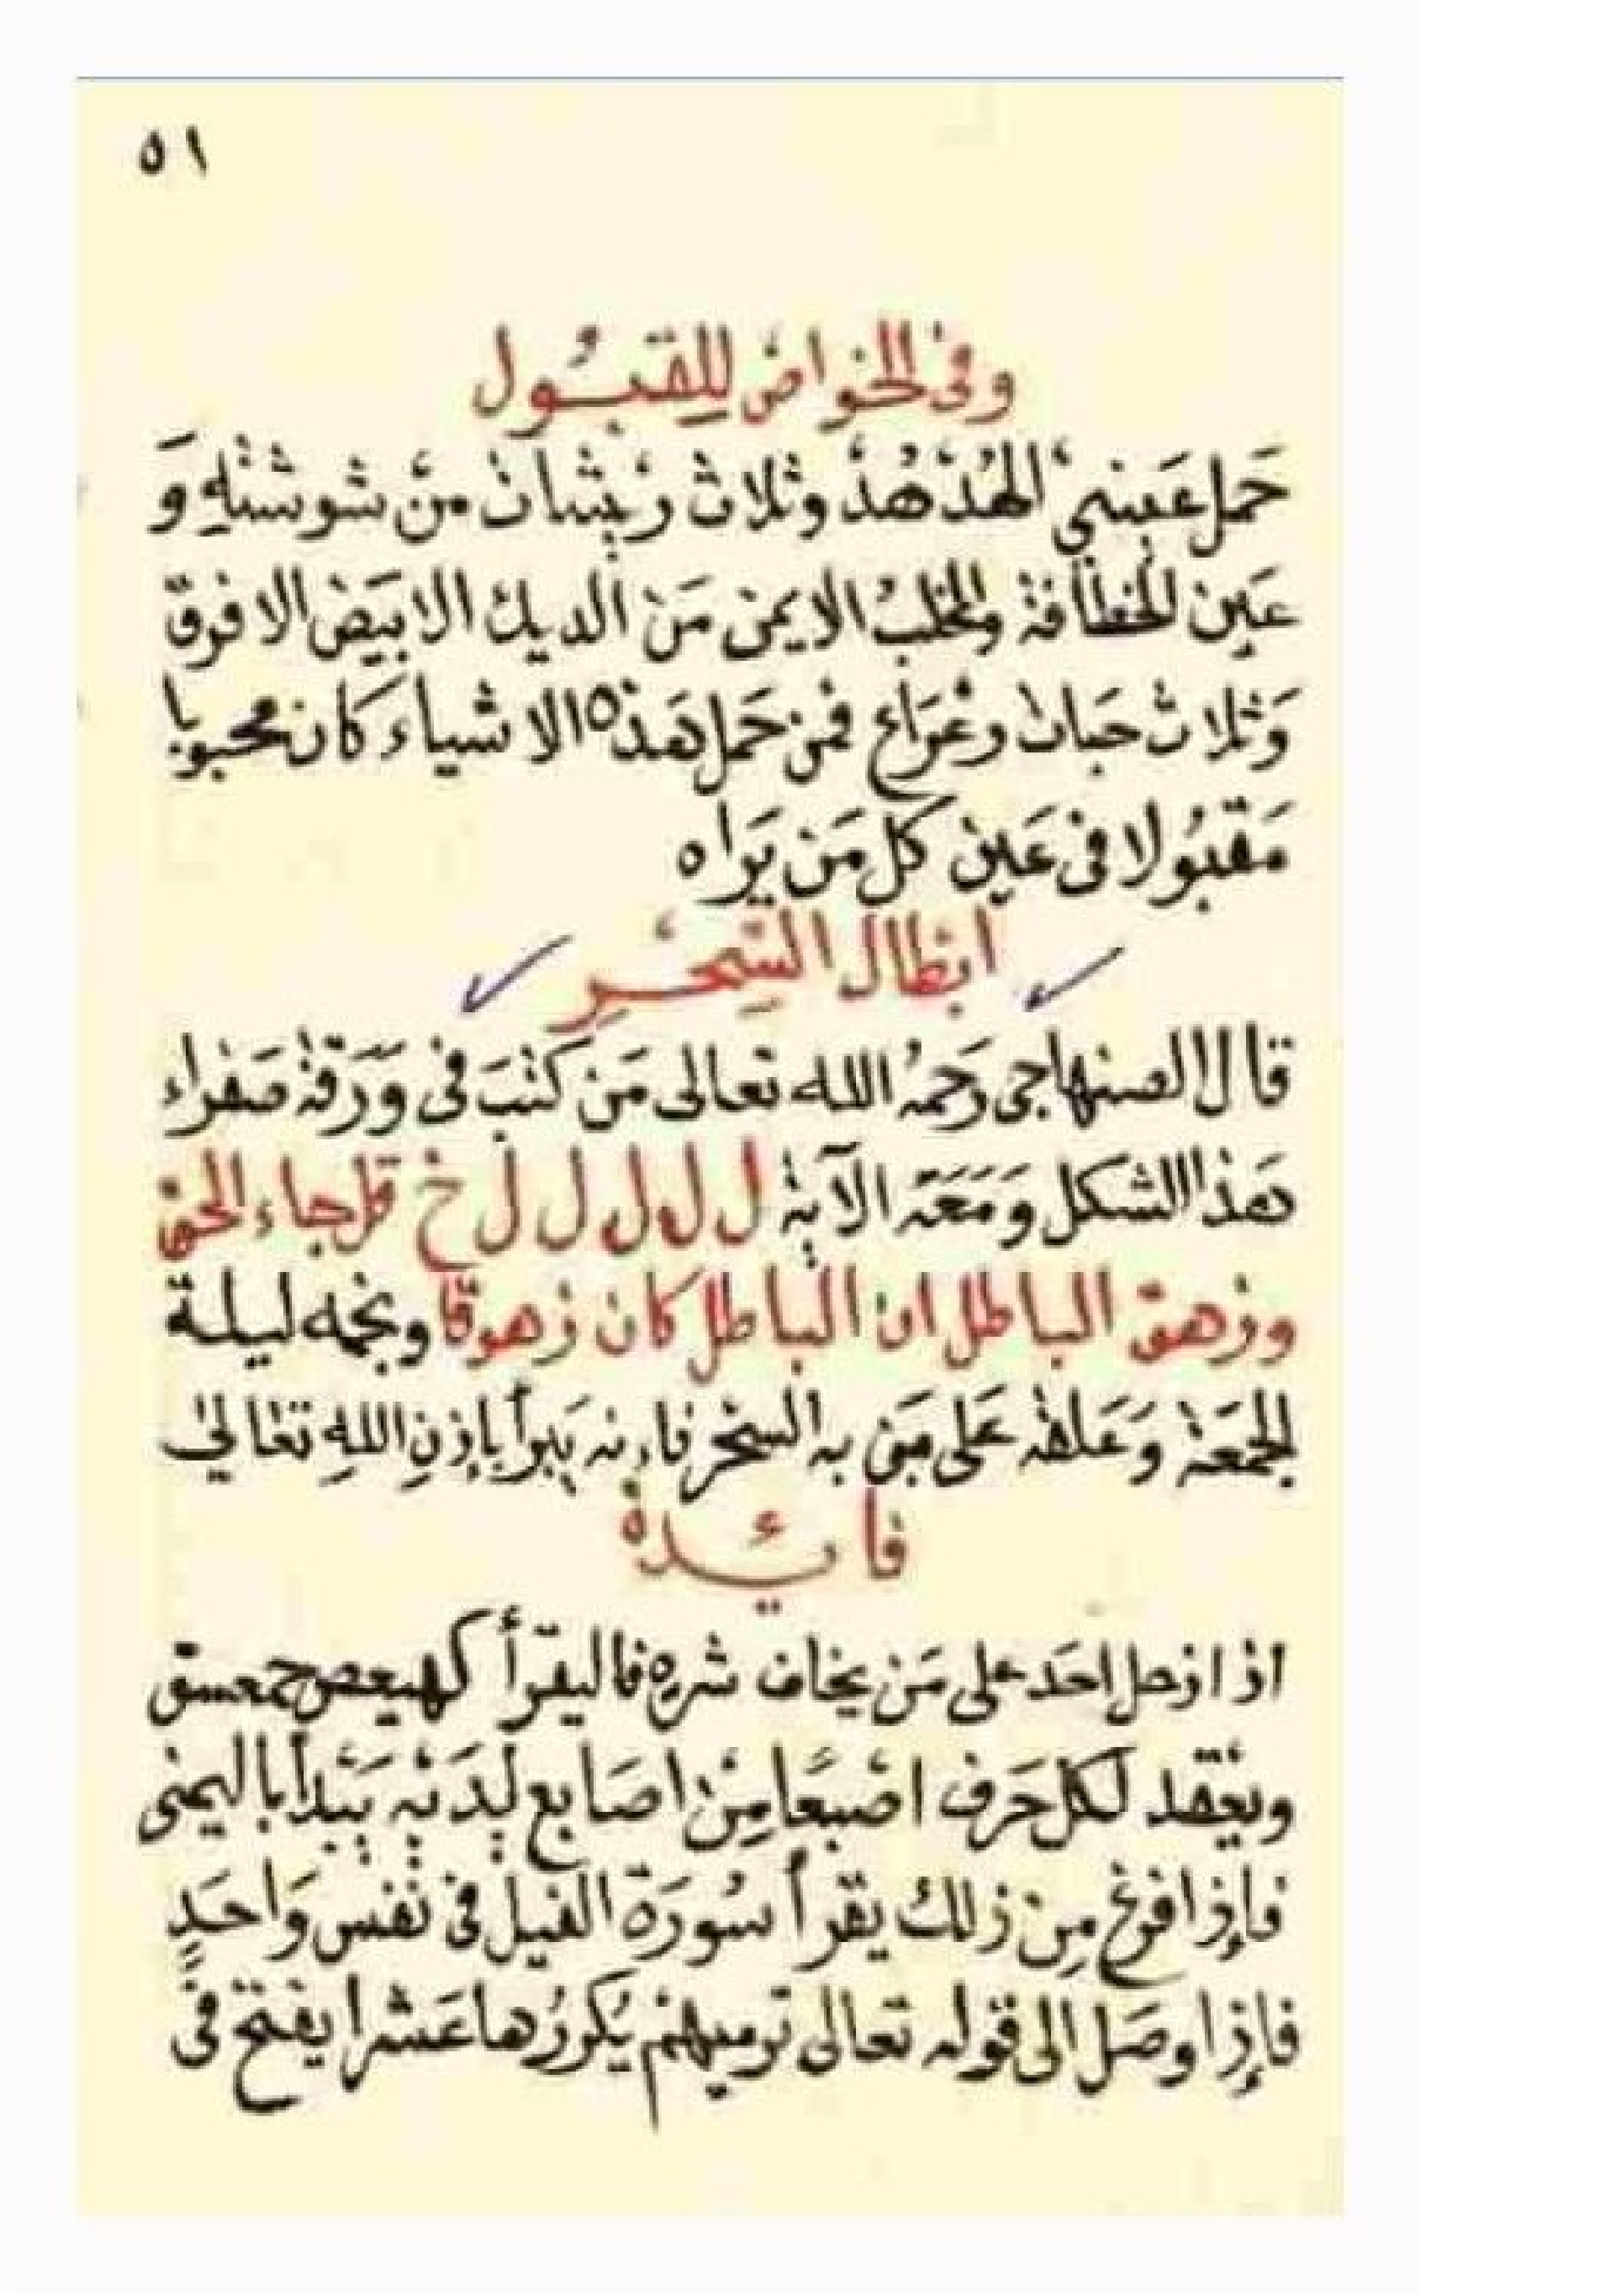 ٥١
وفى الخواص للقبُول
حَمل عَينيْ الهُدْهُدْ وثلاث ريْشات منْ شوشتهِ وَ
عَين الخطافة والمخلبُ الايمن مَن الديك الابيَض الافرق
وَثلاث حَبات وعْرَاع فمن حَمل هَذه الاشياء كَان محبوبا
مَقبُولا فى عَين كل مَن يَراه
ابْطال السِّحْرِ
قال الصنهاجى رَحمهُ الله تعالى مَن كتبَ فى وَرَقة صَفراء
هَذا الشكل وَمَعَه الآية ل ل ل ل ل خ قل جاء الحق
وزهق الباطل ان الباطل كان زهوقا وبخمه ليلة
الجمعَة وَعَلقه عَلى مَن به السحر فاءنه يَبرأ بإذنِ اللهِ تعَالي
فائدة
اذا ازحل احَد على مَن يخاف شره فاليقرأ كهيعص حمعسق
ويعْقد لكل حَرف اصْبعًا مِنْ اصَابع لِدَيْه يَبْدأ باليمنى
فإذا فرغ مِن ذلك يقرأ سُورَة الفيل فى نفس وَاحدٍ
فإذا وصَل الى قوله تعالى ترميهمْ يُكررُها عَشرا يفتح فى